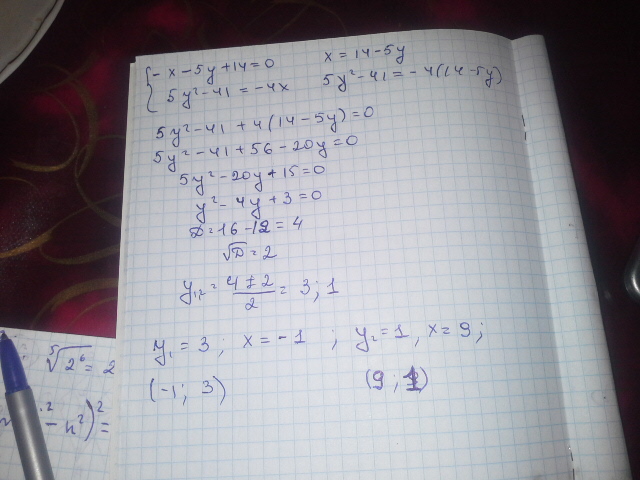 { -x-5y+14=0 x=14-5y
5y²-41=-4x 5y²-41=-4(14-5y)
5y²-41+4(14-5y)=0
5y²-41+56-20y=0
5y²-20y+15=0
y²-4y+3=0
D=16-12=4
√D=2
y₁,₂=(4±2)/2=3;1
y₁=3; x=-1; y₂=1, x=9;
(-1; 3) (9; 1)
⁵√2⁶=2
-n²)²=